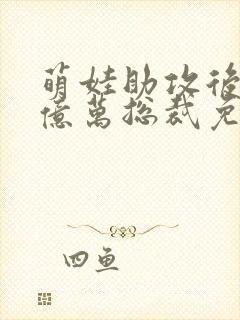 萌娃助攻後
億萬總裁免
四鱼